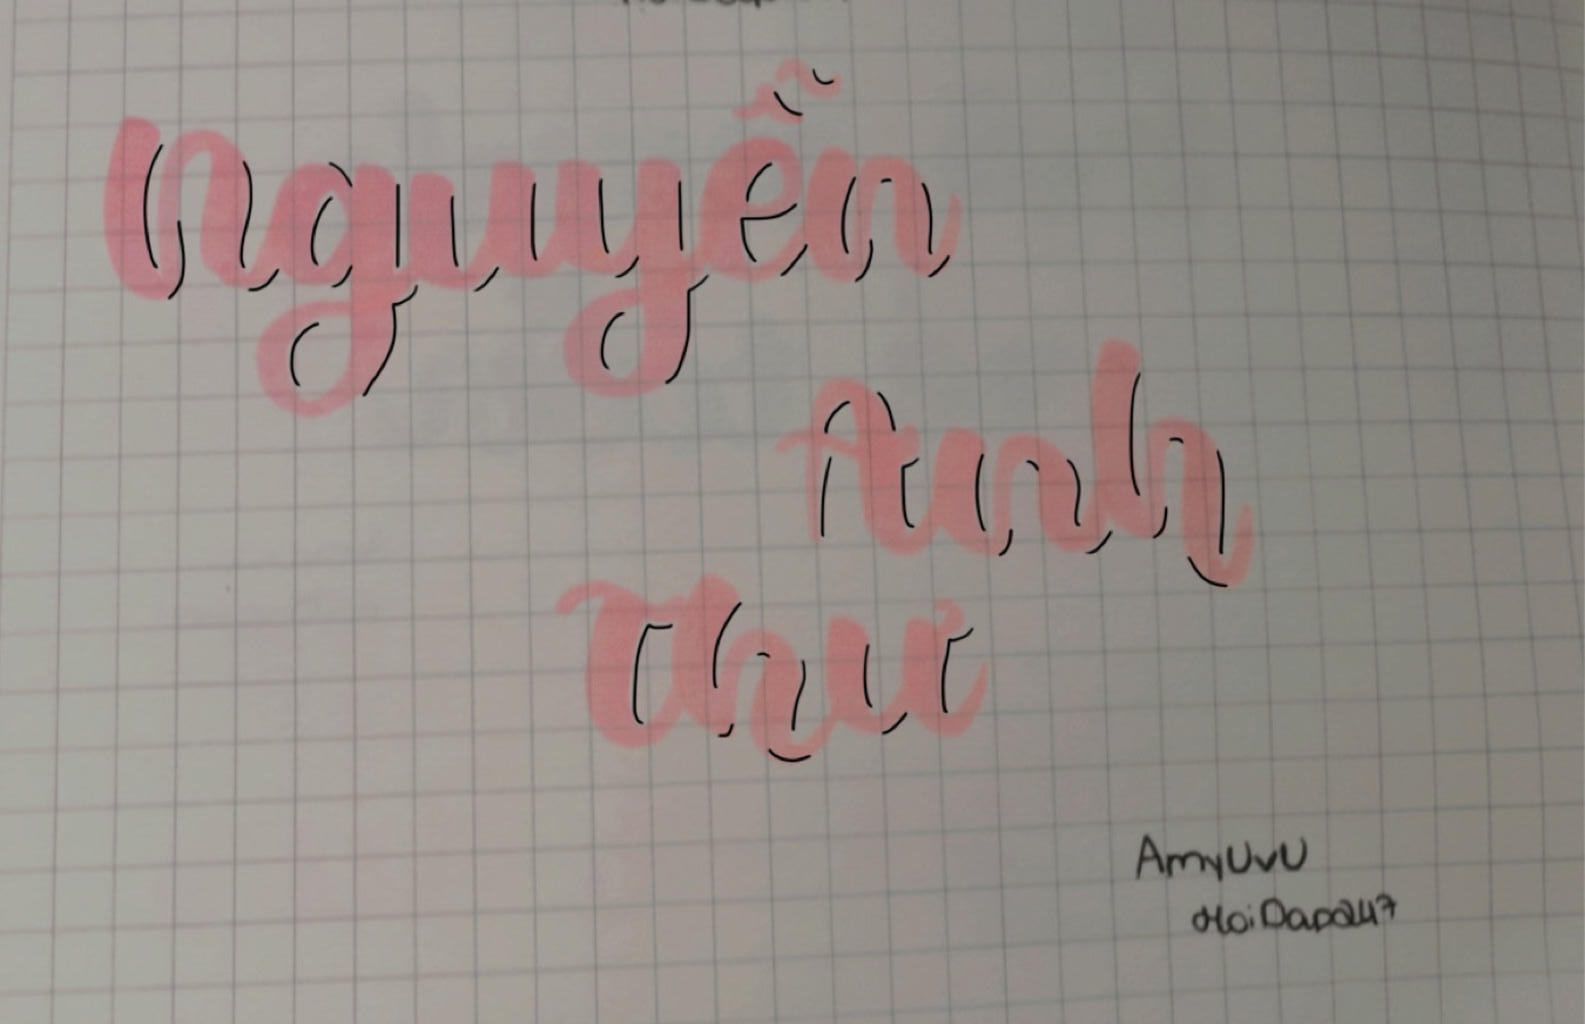 Nguyễn
Anh
Thư
AmyUvU
HoiDap247